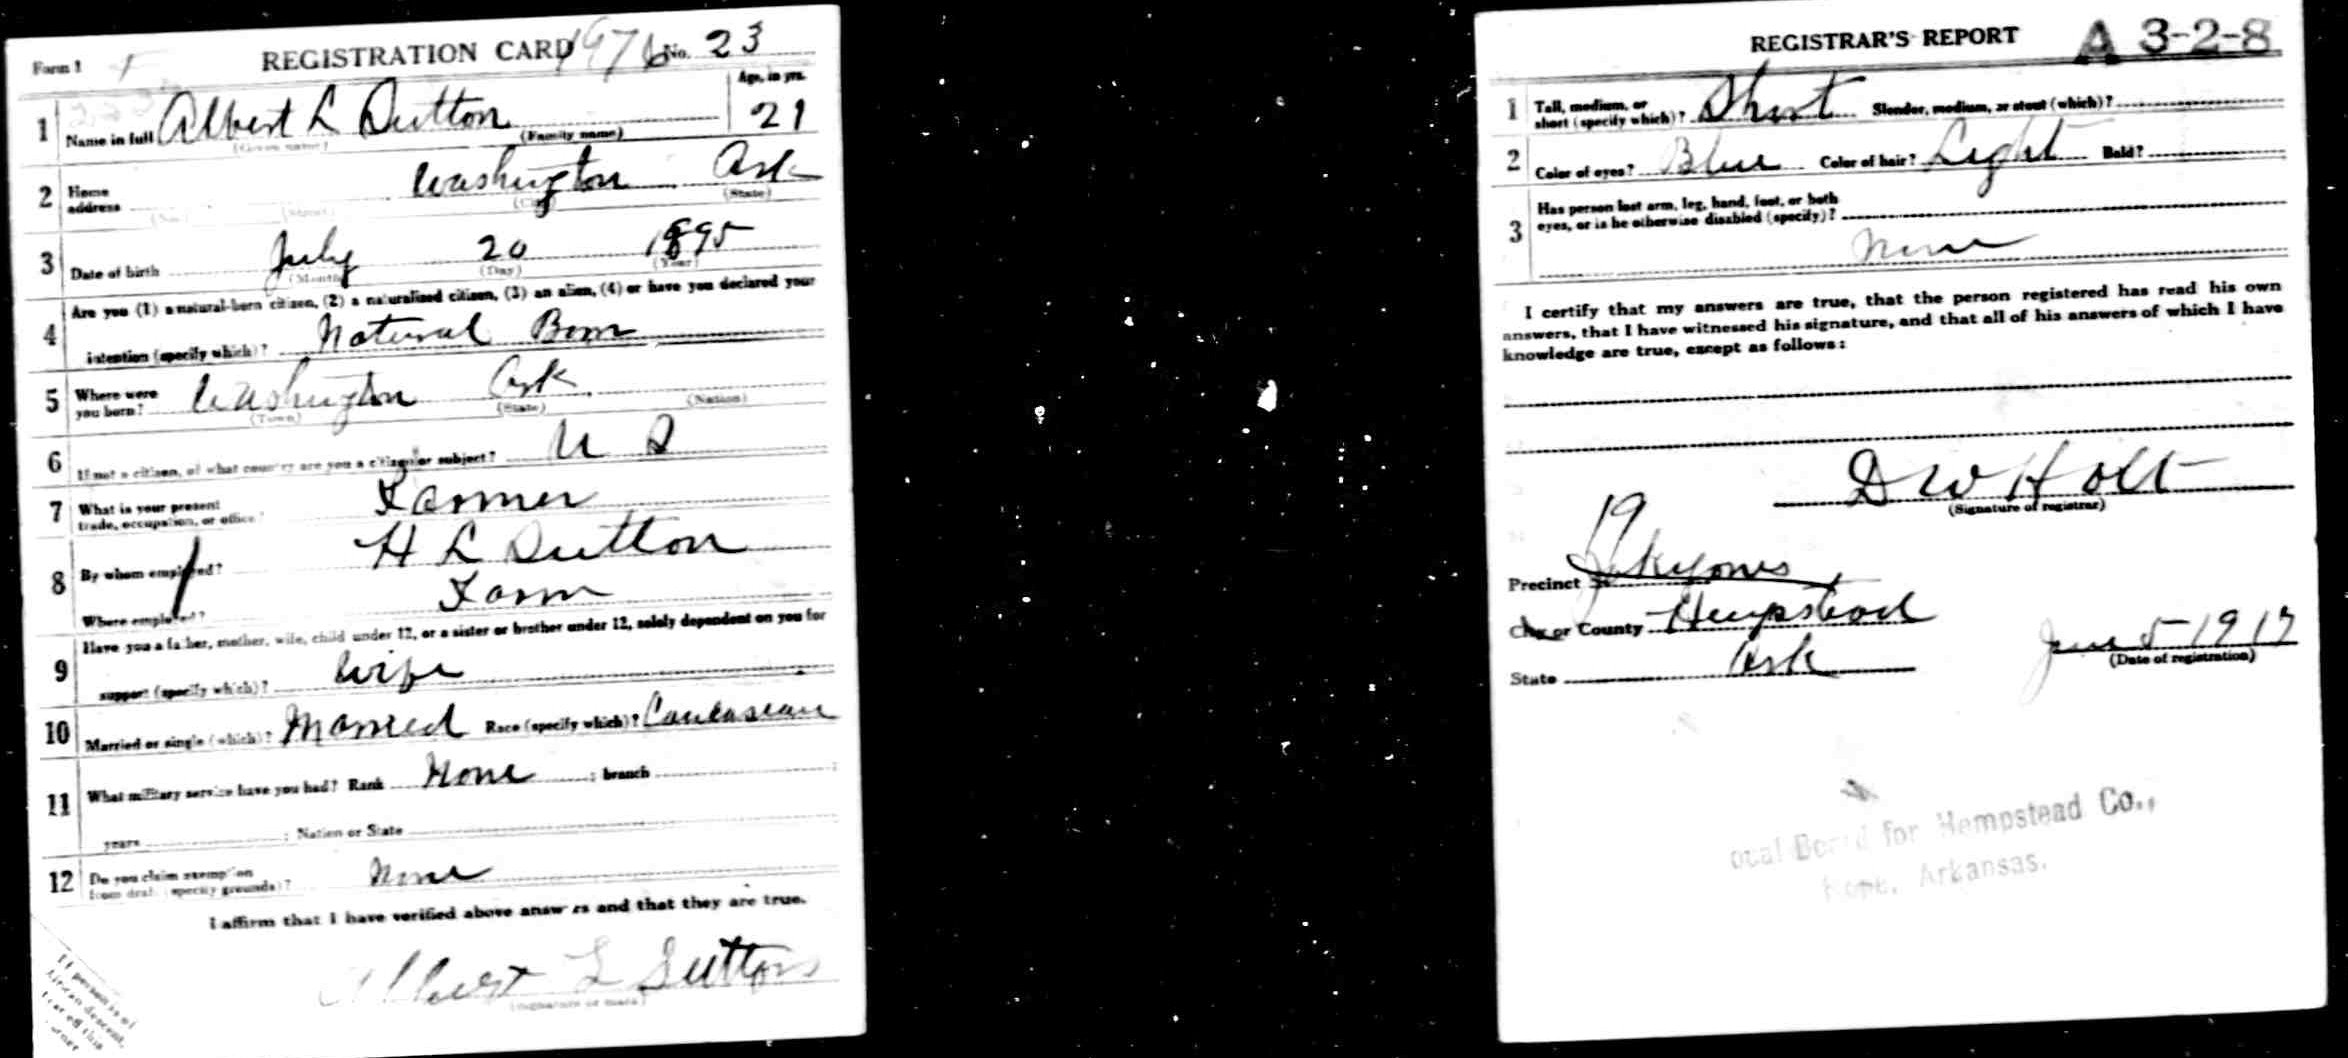 Form 1 REGISTRATION CARD 1976 No. 23
Age, in yrs.
1 Name in full Albert L Dutton 21
(Given name) (Family name)
2 Home address Washington Ark
(No.) (Street) (City) (State)
3 Date of birth July 20 1895
(Month) (Day) (Year)
4 Are you (1) a natural-born citizen, (2) a naturalized citizen, (3) an alien, (4) or have you declared your
intention (specify which)? Natural Born
5 Where were you born? Washington Ark
(Town) (State) (Nation)
6 If not a citizen, of what country are you a citizen or subject? U S
7 What is your present trade, occupation, or office? Farmer
8 By whom employed? H L Dutton
Where employed? Farm
9 Have you a father, mother, wife, child under 12, or a sister or brother under 12, solely dependent on you for
support (specify which)? Wife
10 Married or single (which)? Married Race (specify which)? Caucasian
11 What military service have you had? Rank None ; branch ;
years ; Nation or State
12 Do you claim exemption from draft (specify grounds)? None
I affirm that I have verified above answers and that they are true.
Albert L Dutton
(Signature or mark)
If person is of
African descent,
tear off this
corner
REGISTRAR'S REPORT A 3-2-8
1 Tall, medium, or short (specify which)? Short Slender, medium, or stout (which)?
2 Color of eyes? Blue Color of hair? Light Bald?
3 Has person lost arm, leg, hand, foot, or both
eyes, or is he otherwise disabled (specify)?
None
I certify that my answers are true, that the person registered has read his own
answers, that I have witnessed his signature, and that all of his answers of which I have
knowledge are true, except as follows:
D W Holt
(Signature of registrar)
19
Precinct
City or County Hempstead
State Ark June 5 1917
(Date of registration)
ocal Board for Hempstead Co.,
Hope, Arkansas.